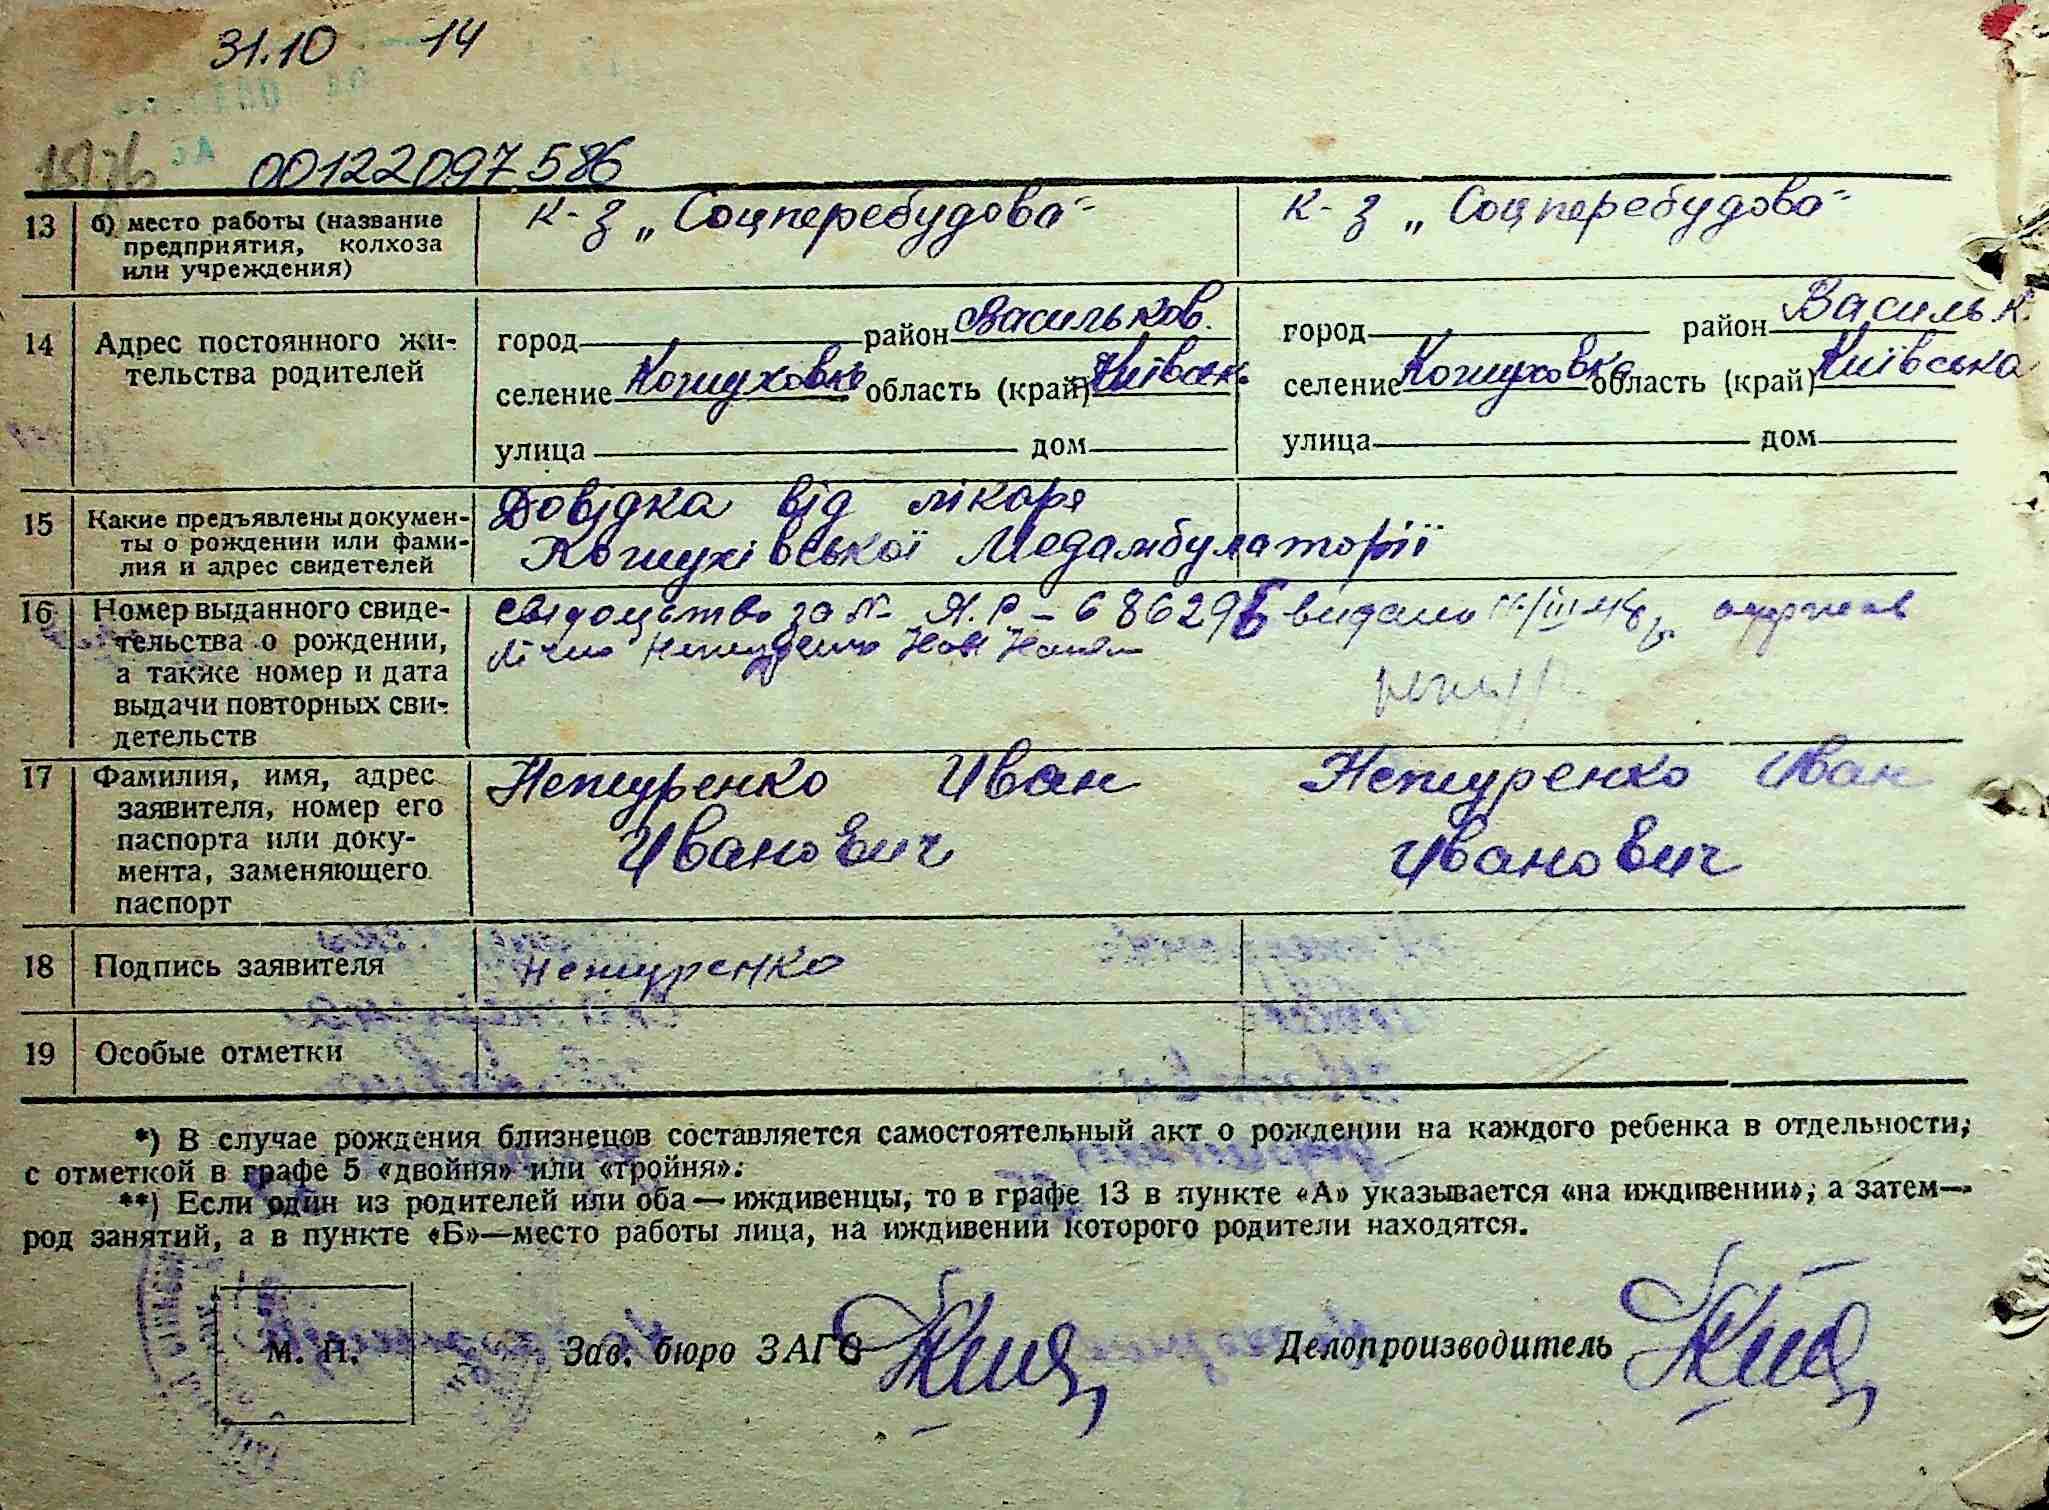 31.10 14
00122097586
13 б) место работы (название предприятия, колхоза или учреждения) к-з „Соцперебудова" к-з „Соцперебудова"
14 Адрес постоянного жительства родителей
город район Васильков. город район Васильк.
селение Кожуховка область (край) Київськ. селение Кожуховка область (край) Київська
улица дом улица дом
15 Какие предъявлены документы о рождении или фамилия и адрес свидетелей
Довідка від лікаря
Кожухівської Медамбулаторії
16 Номер выданного свидетельства о рождении, а также номер и дата выдачи повторных свидетельств
свідоцтво за № Я.Р. – 686296 видано
лічно
17 Фамилия, имя, адрес заявителя, номер его паспорта или документа, заменяющего паспорт
Нежуренко Иван Нежуренко Иван
Иванович Иванович
18 Подпись заявителя Нежуренко
19 Особые отметки
*) В случае рождения близнецов составляется самостоятельный акт о рождении на каждого ребенка в отдельности,
с отметкой в графе 5 «двойня» или «тройня».
**) Если один из родителей или оба — иждивенцы, то в графе 13 в пункте «А» указывается «на иждивении», а затем—
род занятий, а в пункте «Б»—место работы лица, на иждивении которого родители находятся.
М. П. Зав. бюро ЗАГС Делопроизводитель